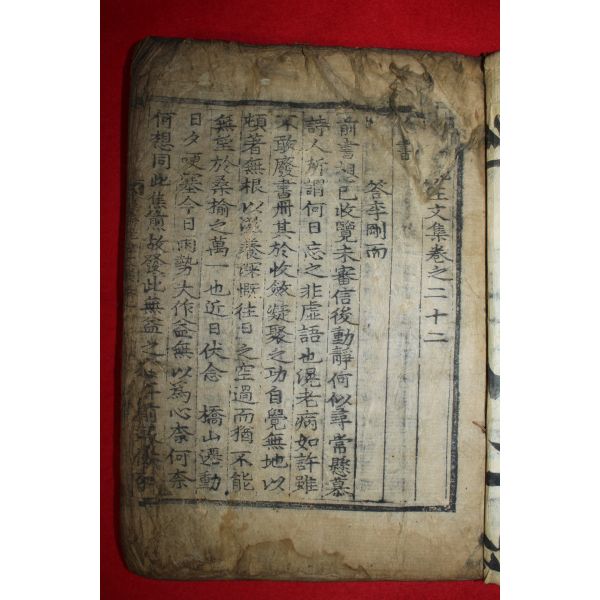 生文集卷之二十二
書
答李剛而
前書想已收覽未審信後動靜何似尋常懸慕
詩人所謂何日忘之非虛語也滉老病如許雖
不敢廢書冊其於收斂凝聚之功自覺無地以
頓著無根以滋養深慨往日之空過而猶不能
無望於桑榆之萬一也近日伏念 橋山遷動
日夕哽塞今日雨勢大作益無以為心柰何柰
何想同此焦煎故發此無益之